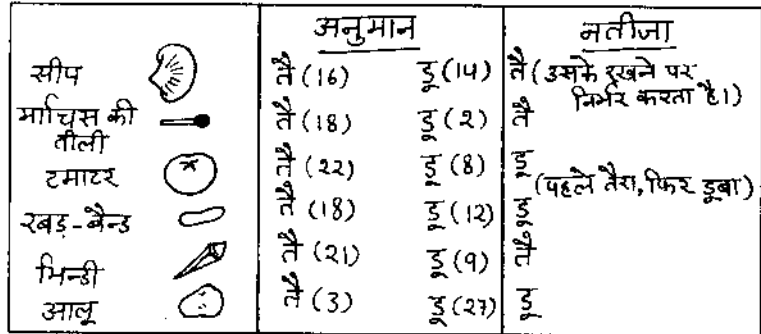 अनुमान नतीजा
सीप तै (16) डू (14) तै (उसके रखने पर
निर्भर करता है।)
माचिस की तै (18) डू (2) तै
तीली
टमाटर तै (22) डू (8) डू
(पहले तैरा, फिर डूबा)
रबड़-बैन्ड तै (18) डू (12) डू
भिन्डी तै (21) डू (9) तै
आलू तै (3) डू (27) डू